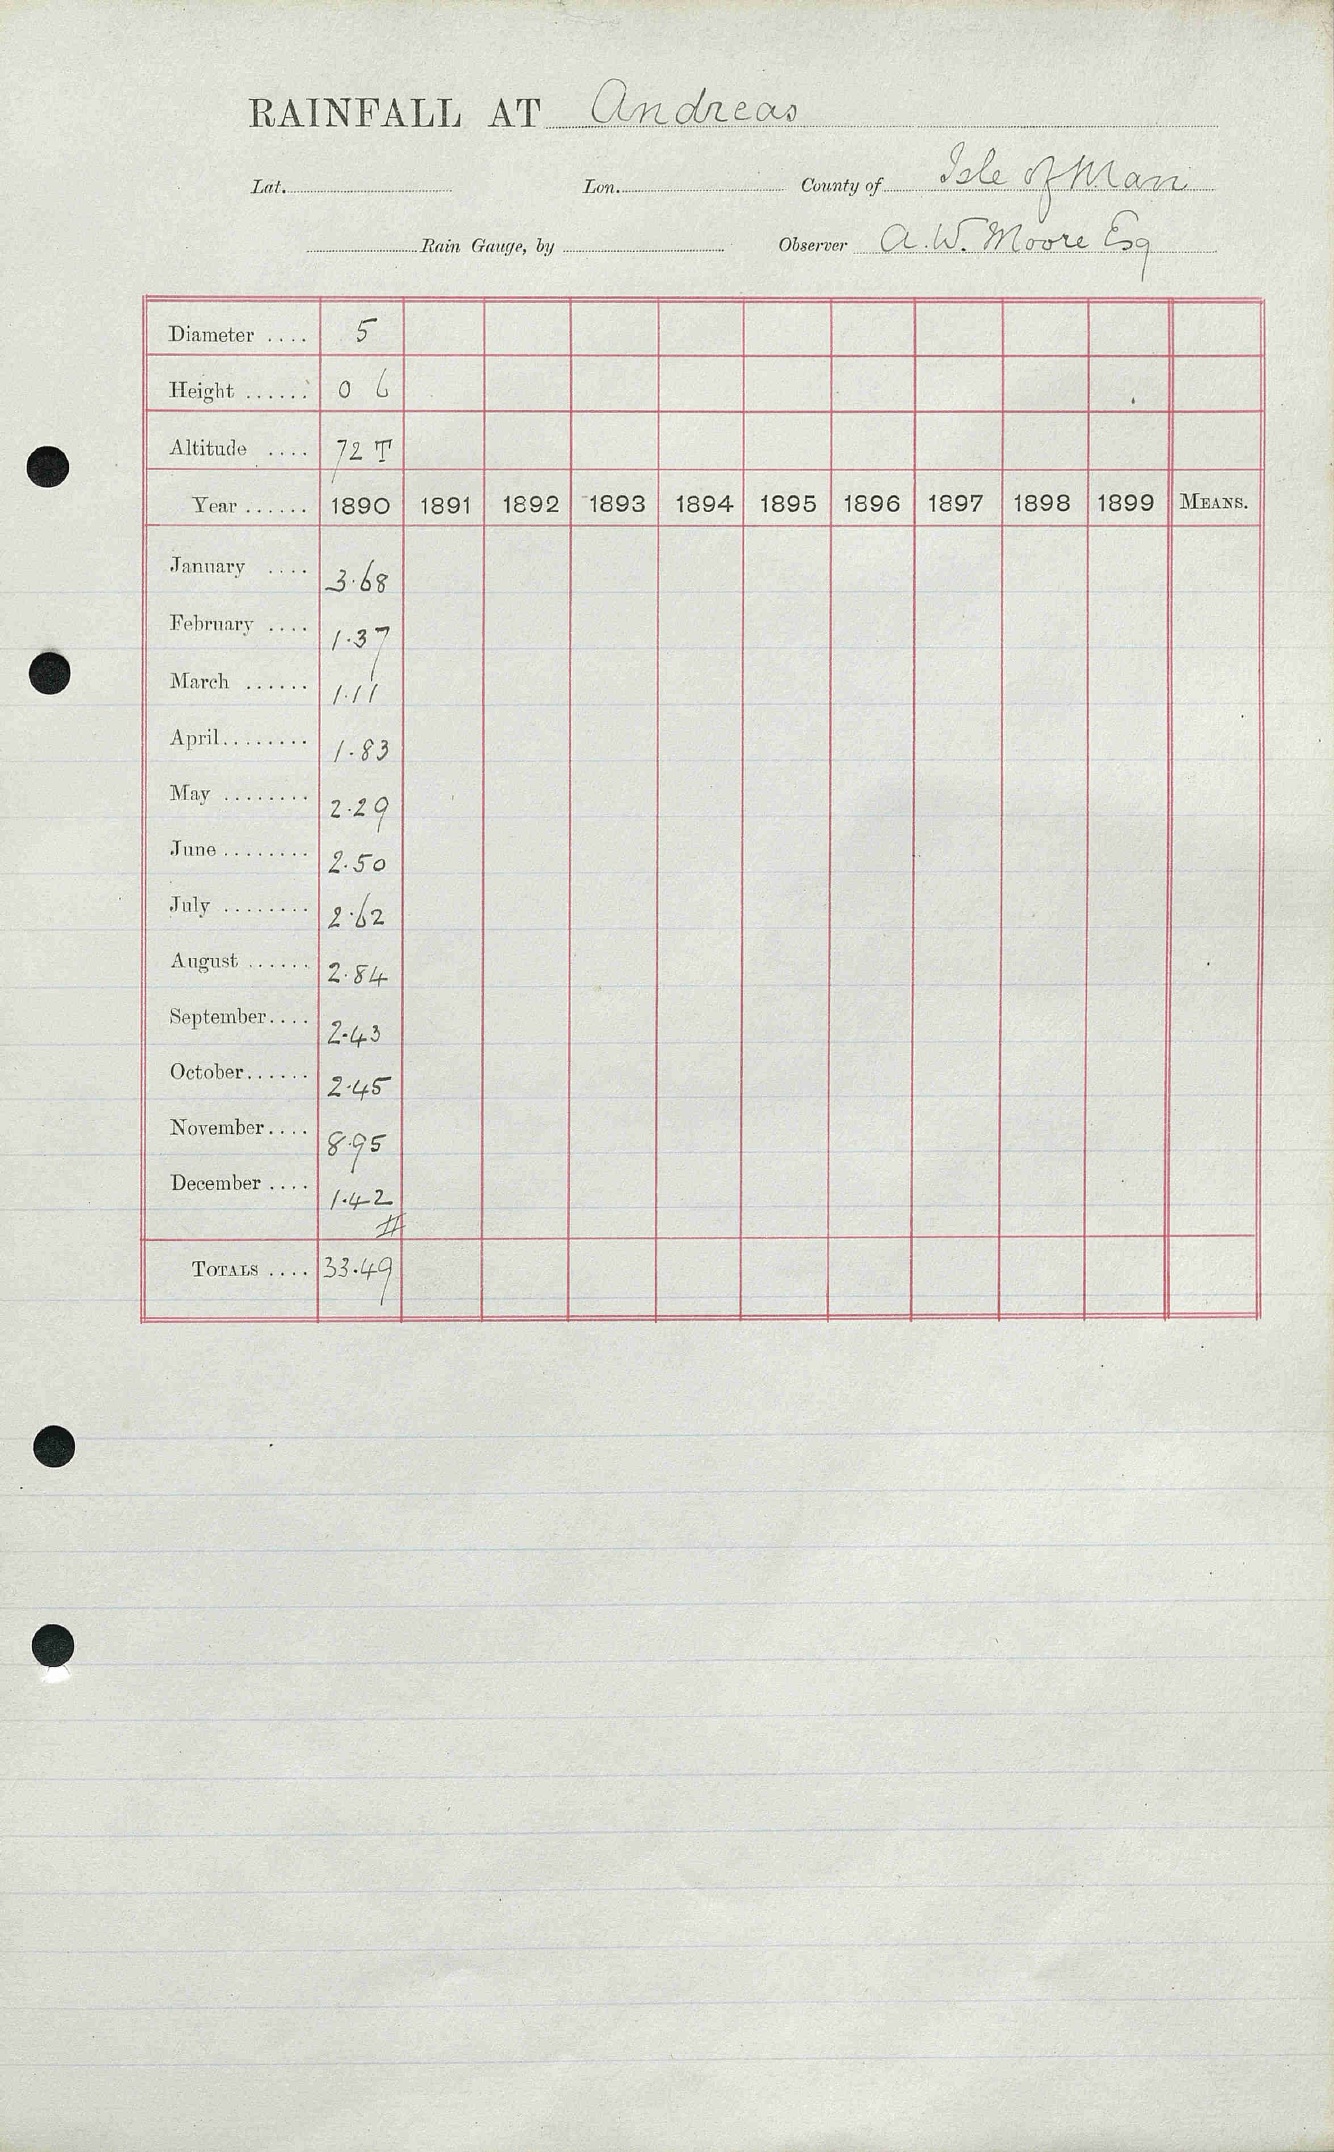 RAINFALL AT Andreas
Lat. Lon. County of Isle of Man
Rain Gauge, by Observer A. W. Moore Esq
Diameter .... 5
Height ...... 0 6
Altitude .... 72 T
Year ...... 1890 1891 1892 1893 1894 1895 1896 1897 1898 1899 MEANS.
January .... 3.68
February .... 1.37
March ...... 1.11
April........ 1.83
May ........ 2.29
June ........ 2.50
July ........ 2.62
August ...... 2.84
September.... 2.43
October...... 2.45
November.... 8.95
December .... 1.42
#
TOTALS .... 33.49